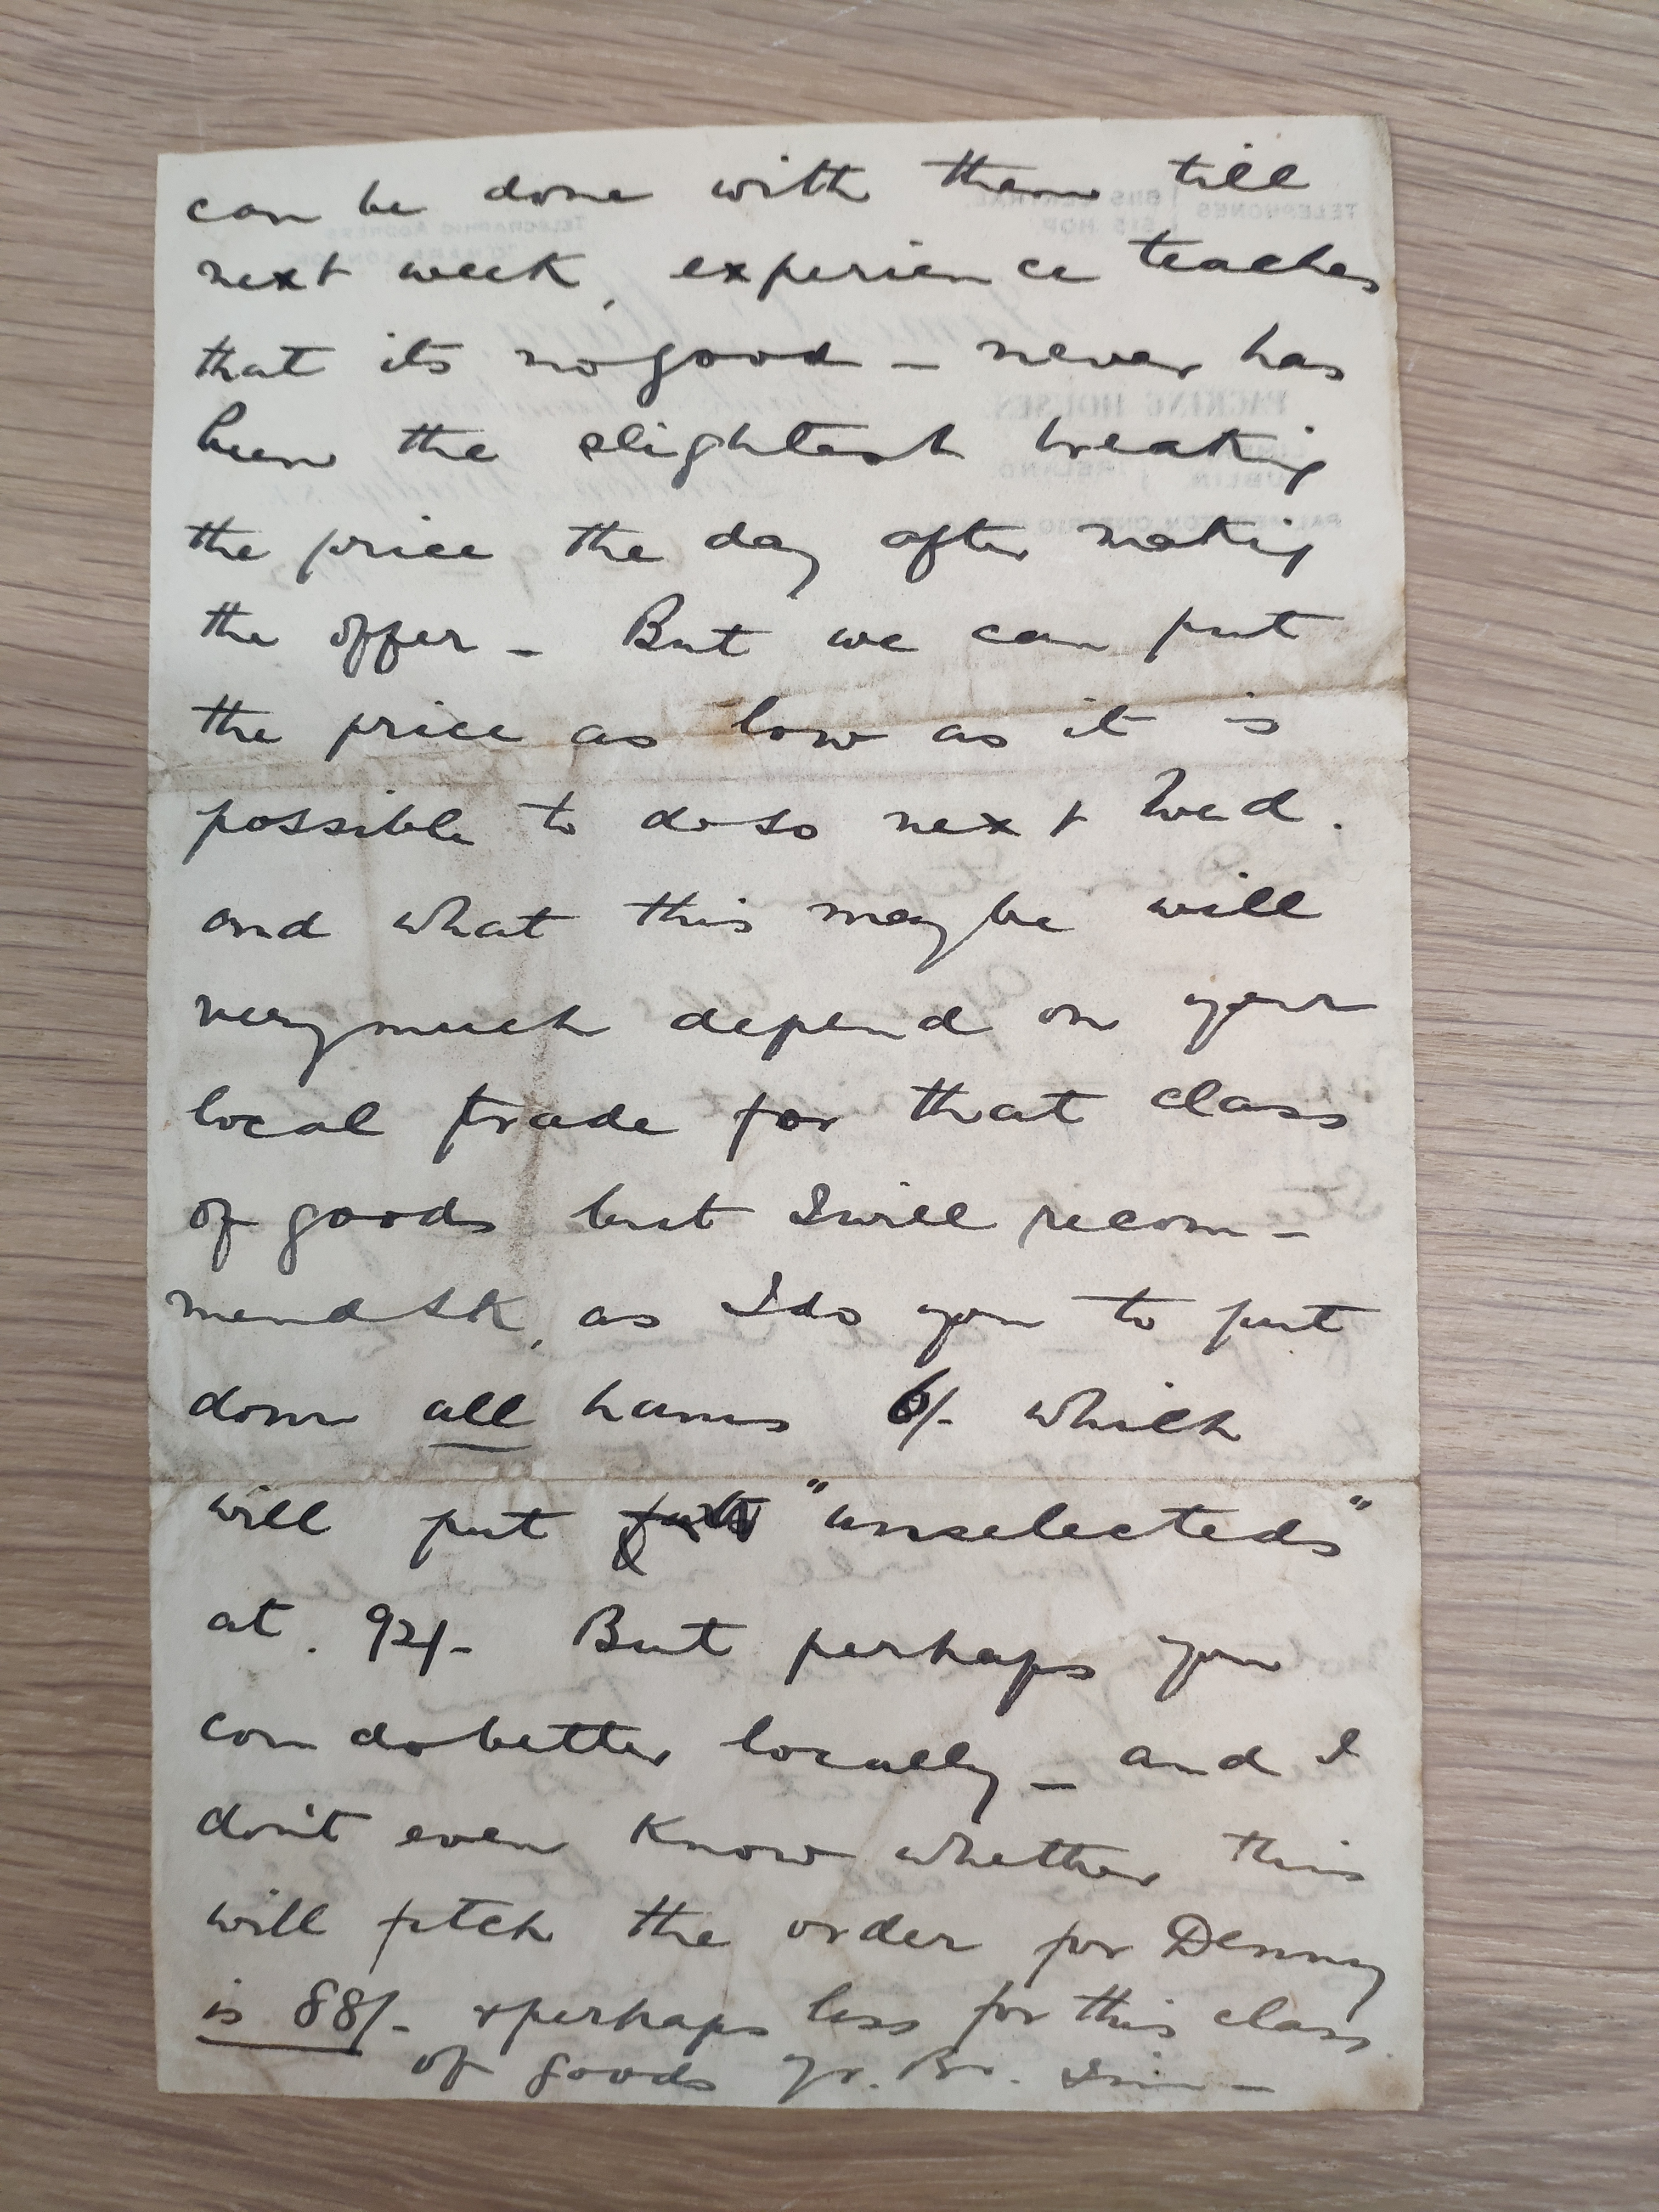 can be done with them till
next week, experience teaches
that its no good – never has
been the slightest breaking
the price the day after making
the offer – But we can put
the price as low as it is
possible to do so next Wed.
and what this may be will
very much depend on your
local trade for that class
of goods but I will recom-
mend SK, as I do you to put
down all hams 6/- which
will put "unselecteds"
at. 92/- But perhaps you
can do better locally – and I
don't even know whether this
will fetch the order for Denny
is 88/- & perhaps less for this class
of goods yr. Br.